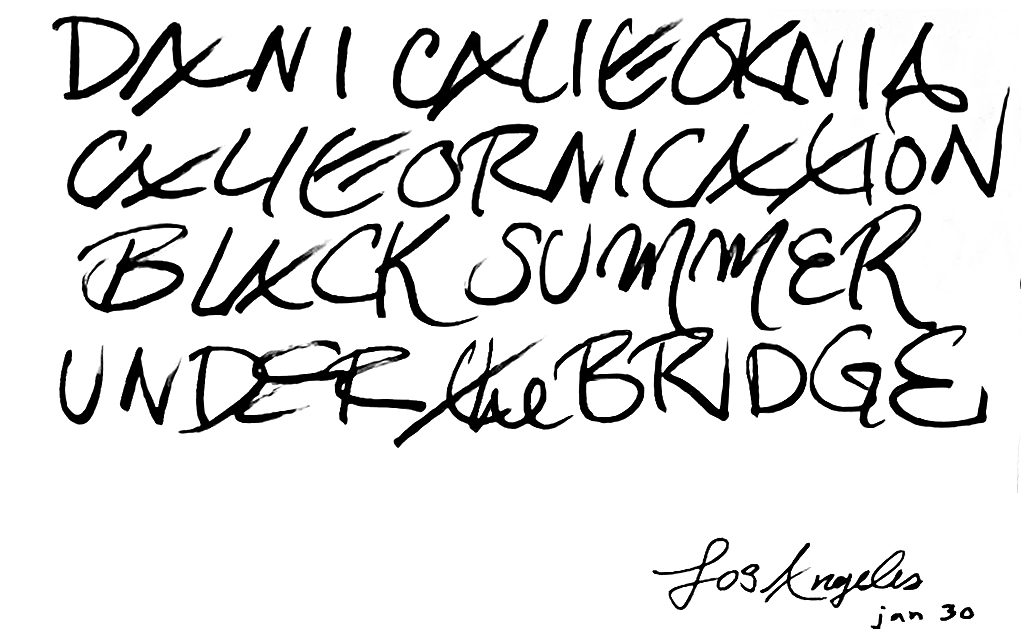 DANI CALIFORNIA
CALIFORNICATION
BLACK SUMMER
UNDER the BRIDGE
Los Angeles
jan 30